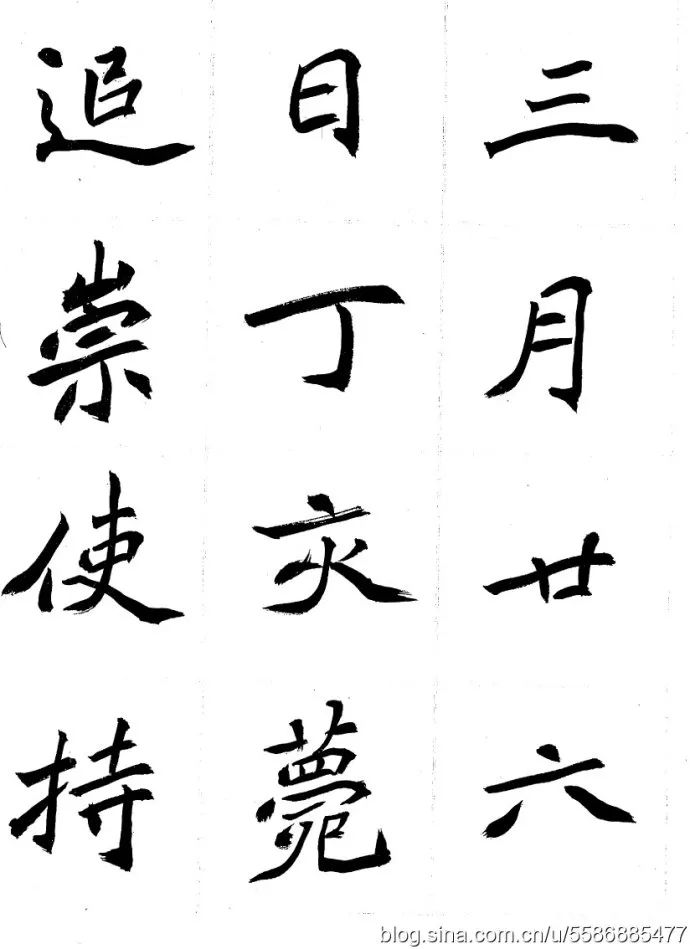 三月廿六
日丁亥薨
追崇使持
blog.sina.com.cn/u/5586885477